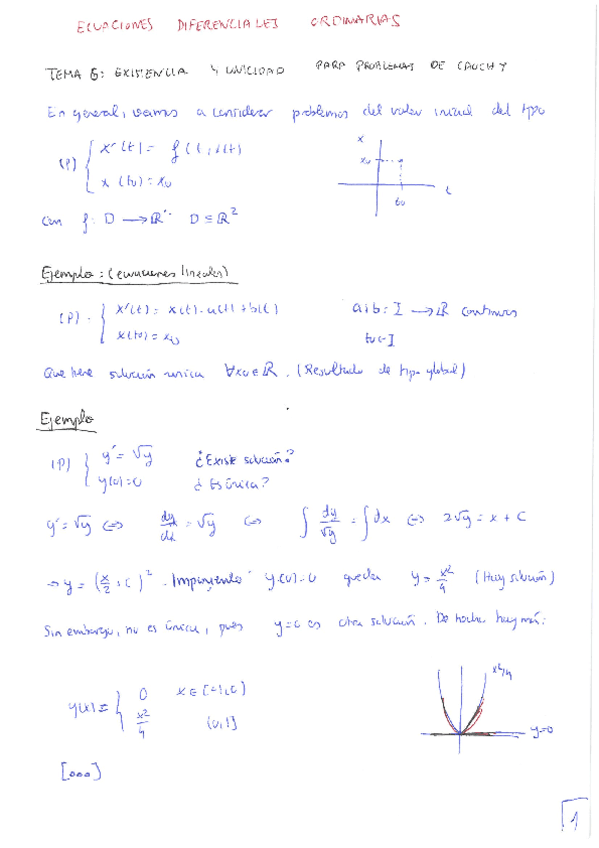 ECUACIONES DIFERENCIALES ORDINARIAS
TEMA 6: EXISTENCIA Y UNICIDAD PARA PROBLEMAS DE CAUCHY
En general, vamos a considerar problemas del valor inicial del tipo
(P) { x'(t) = f(t, x(t))
x(t0) = x0
x
x0
t0
t
Con f: D → R. D ⊆ R²
Ejemplo: (ecuaciones lineales)
(P) · { x'(t) = x(t)·a(t) + b(t)
x(t0) = x0
a, b: I → R continuas
t0 ∈ I
Que tiene solución única ∀x0 ∈ R. (Resultado de tipo global)
Ejemplo
(P) { y' = √y
y(0) = 0
¿Existe solución?
¿Es única?
y' = √y ⟺ dy/dx = √y ⟺ ∫ dy/√y = ∫ dx ⟺ 2√y = x + C
⇒ y = (x/2 + C)². Imponiendo y(0) = 0 queda y = x²/4 (Hay solución)
Sin embargo, no es única, pues y=0 es otra solución. De hecho hay más:
y(x) = { 0 x ∈ [-1,0]
x²/4 (0,1]
x²/4
y=0
[...]
1